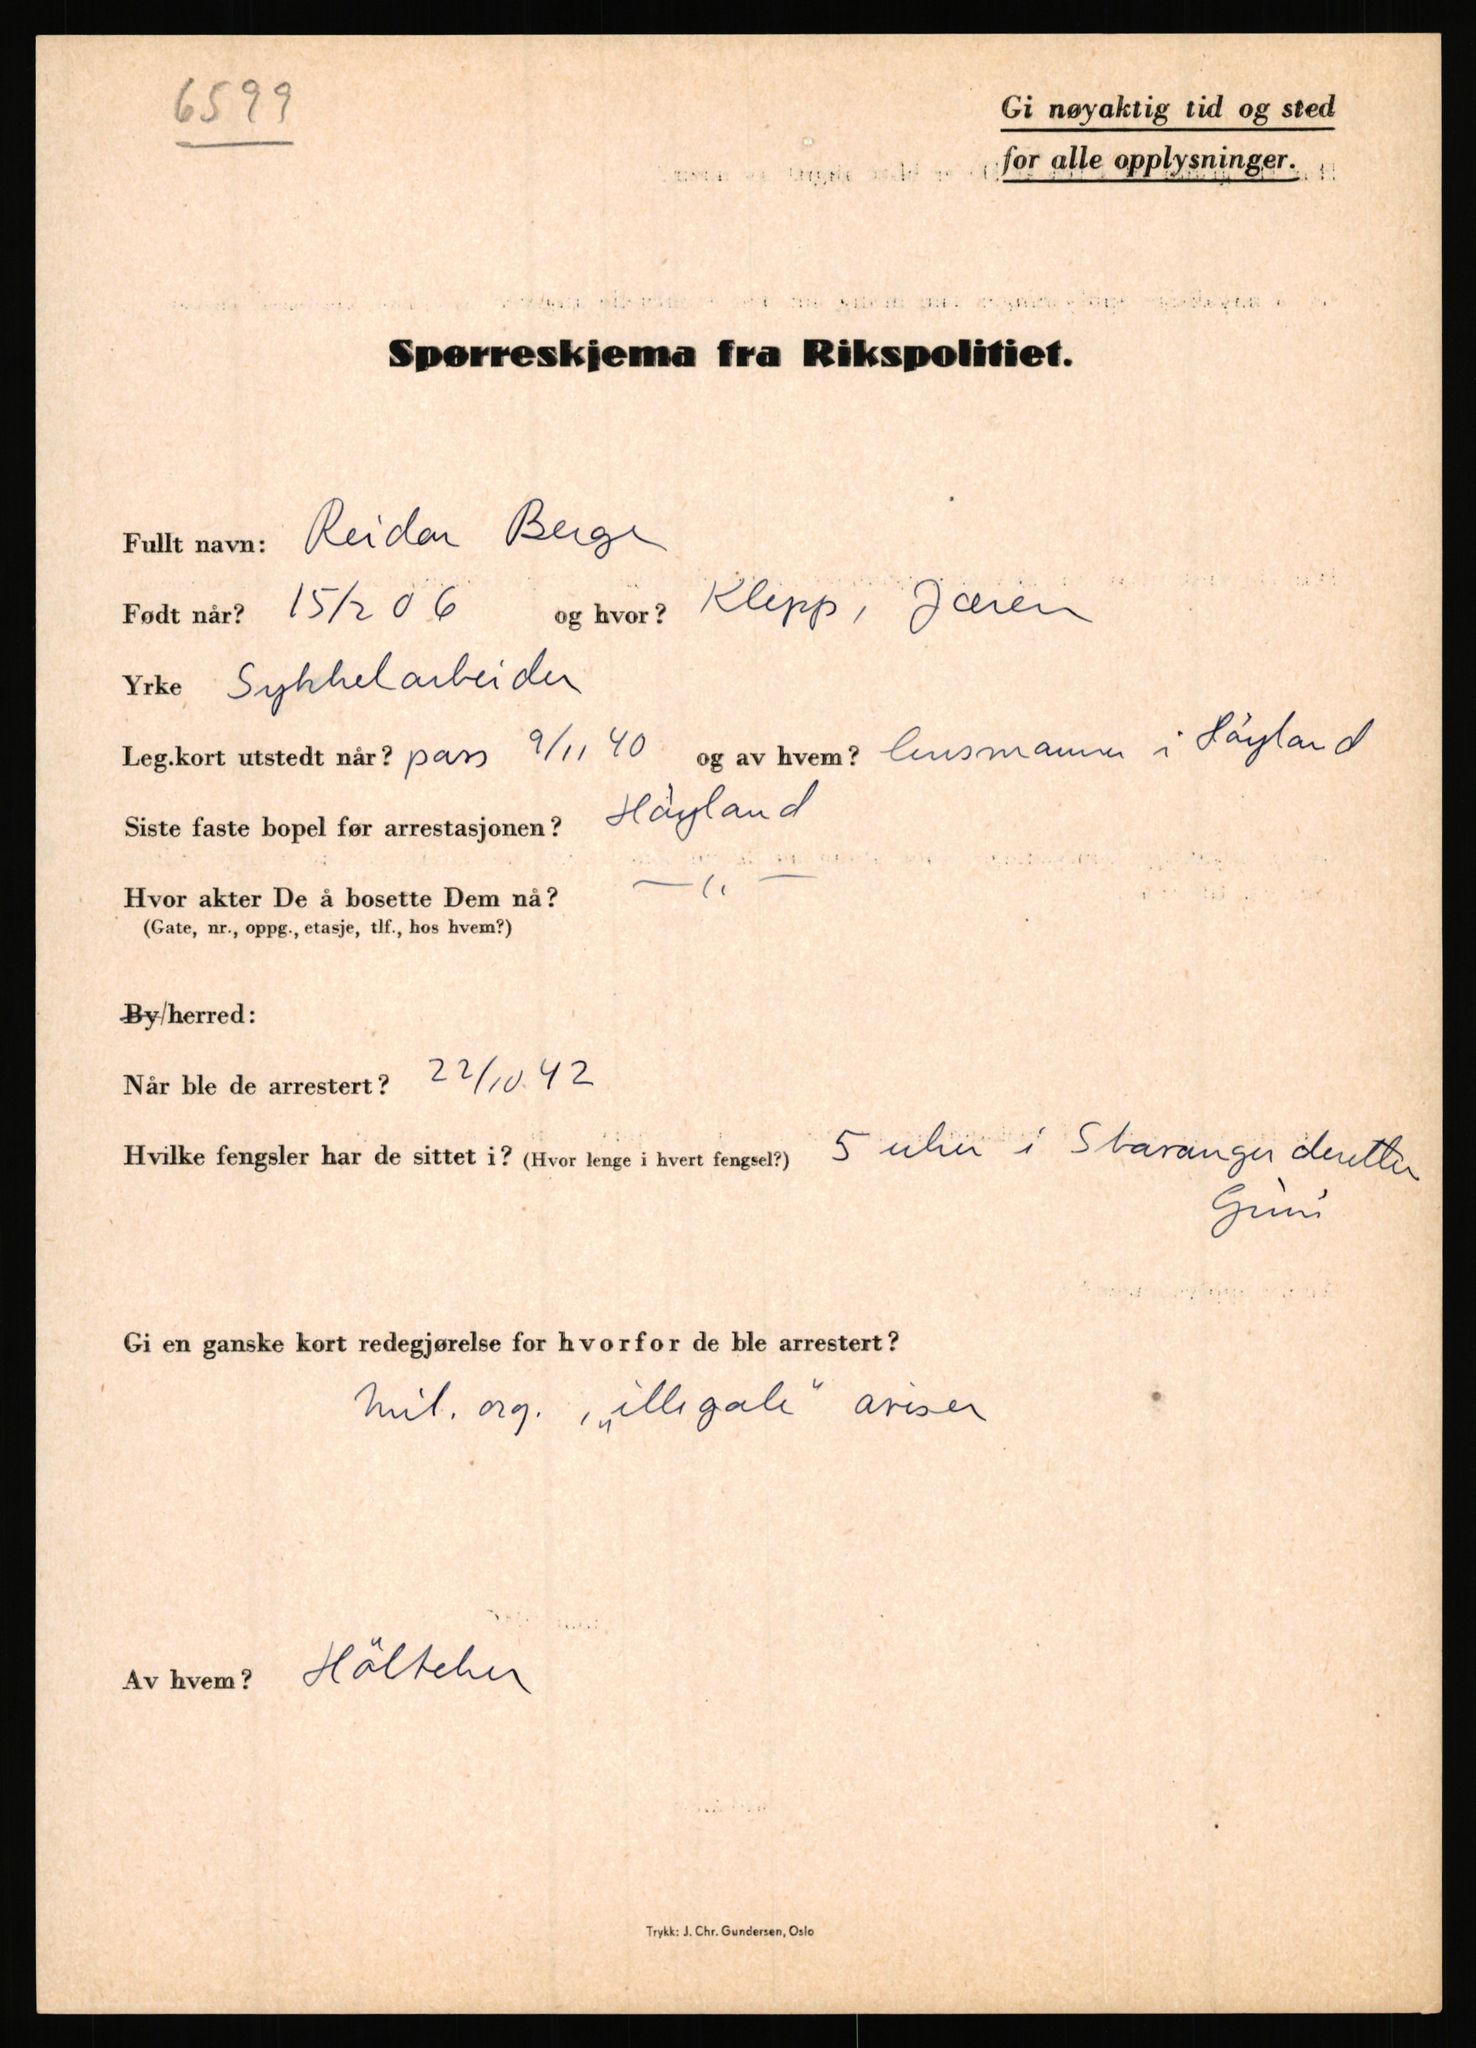 6599
Gi nøyaktig tid og sted
for alle opplysninger.
Spørreskjema fra Rikspolitiet.
Fullt navn: Reidar Berge
Født når? 15/2 06 og hvor? Klepp, Jæren
Yrke Sykkelarbeider
Leg.kort utstedt når? pass 9/11 40 og av hvem? lensmannen i Höyland
Siste faste bopel før arrestasjonen? Höyland
Hvor akter De å bosette Dem nå? —〃—
(Gate, nr., oppg., etasje, tlf., hos hvem?)
By/herred:
Når ble de arrestert? 22/10.42
Hvilke fengsler har de sittet i? (Hvor lenge i hvert fengsel?) 5 uker i Stavanger deretter
Grini
Gi en ganske kort redegjørelse for hvorfor de ble arrestert?
Mil. org., „illegale“ aviser
Av hvem? Hölscher
Trykk: J. Chr. Gundersen, Oslo